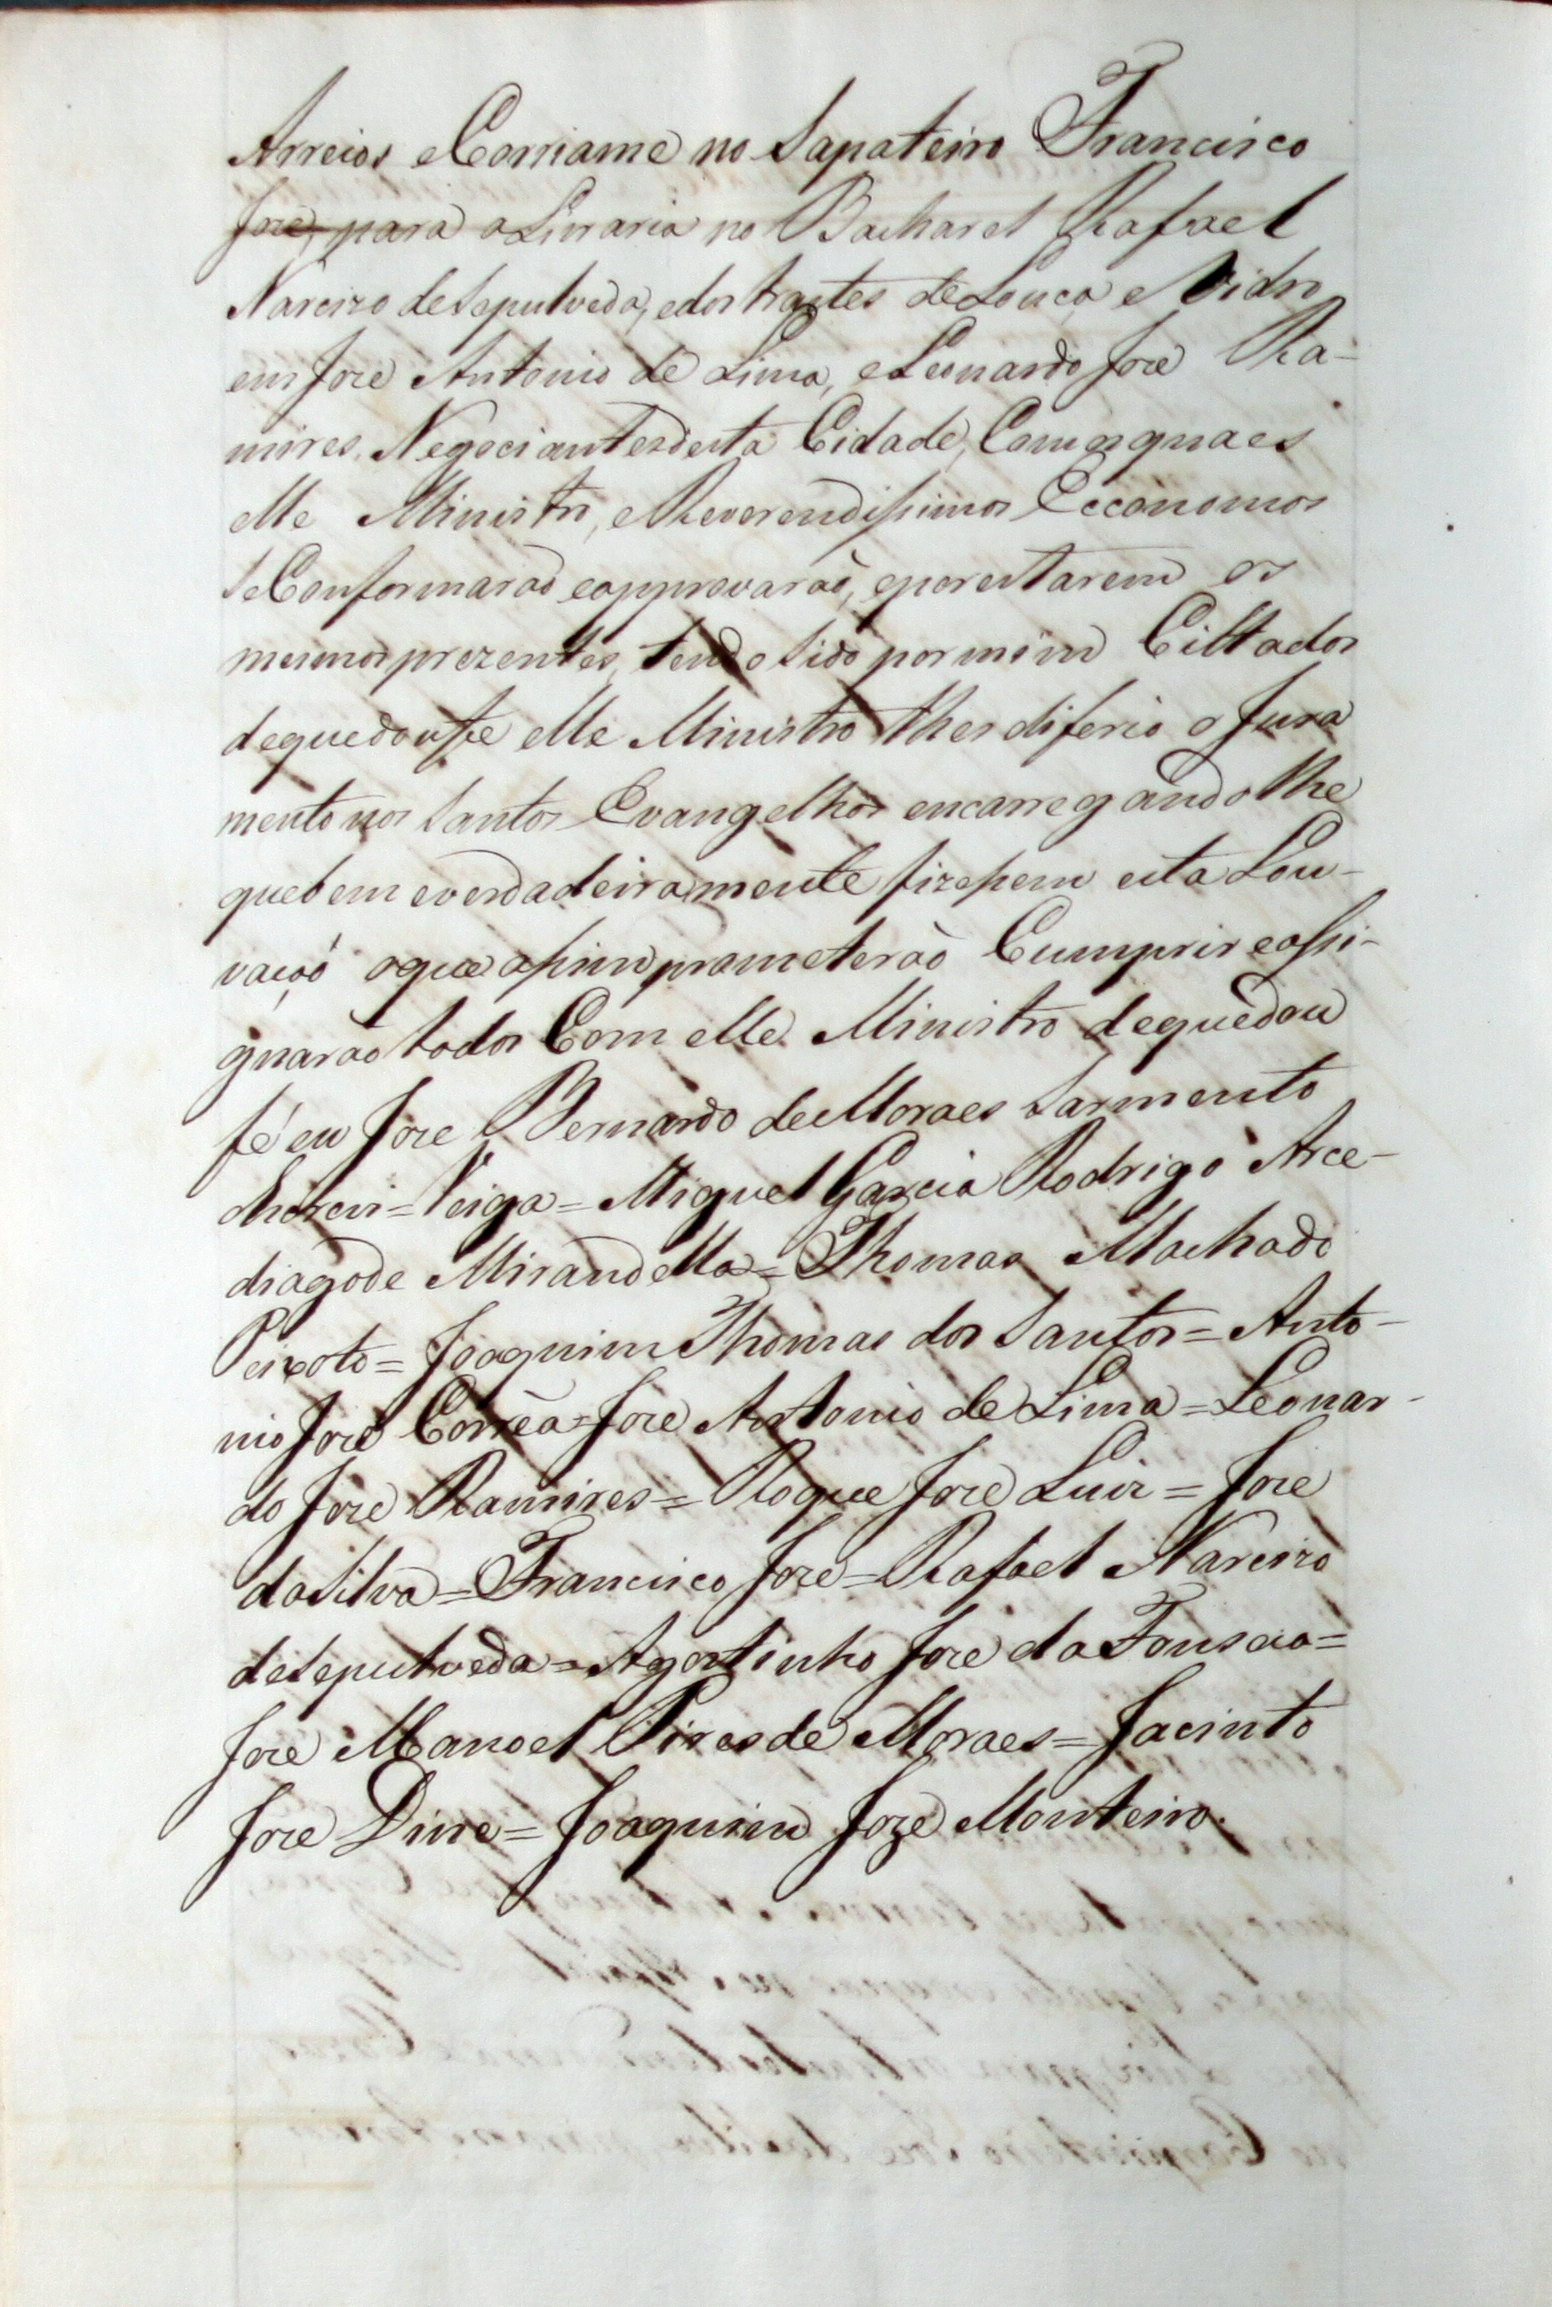 Arreios e Corriame no Sapateiro Francisco
Joze, para a Livraria no Bacharel Rafael
Narcizo de Sepulveda, e dos trastes de Louça e Vidro
em Joze Antonio de Lima, e Leonardo Joze Ra-
mires, Negociantes desta Cidade, Com os quaes
elle Ministro, e Reverendissimos Ecconomos
se Conformarão e approvarão, e por estarem os
mesmos prezentes, tendo sido por mim Cittados
de que dou fe elle Ministro lhes diferio o Jura
mento nos Santos Evangelhos encarregandolhe
que bem e verdadeiramente fizessem esta Lou-
vação o que assim prometerão Cumprir e assi-
gnarão todos Com elle Ministro de que dou
fé eu Joze Bernardo de Moraes Sarmento
o escrevi = Veiga = Miguel Garcia Rodrigo Arce-
diago de Mirandella = Thomas Machado
Peixoto = Joaquim Thomas dos Santos = Anto-
nio Joze Corrêa = Joze Antonio de Lima = Leonar-
do Joze Ramires = Roque Joze Luiz = Joze
da Silva = Francisco Joze = Rafael Narcizo
de Sepulveda = Agostinho Joze da Fonseca =
Joze Manoel Pires de Moraes = Jacinto
Joze Dine = Joaquim Joze Monteiro.